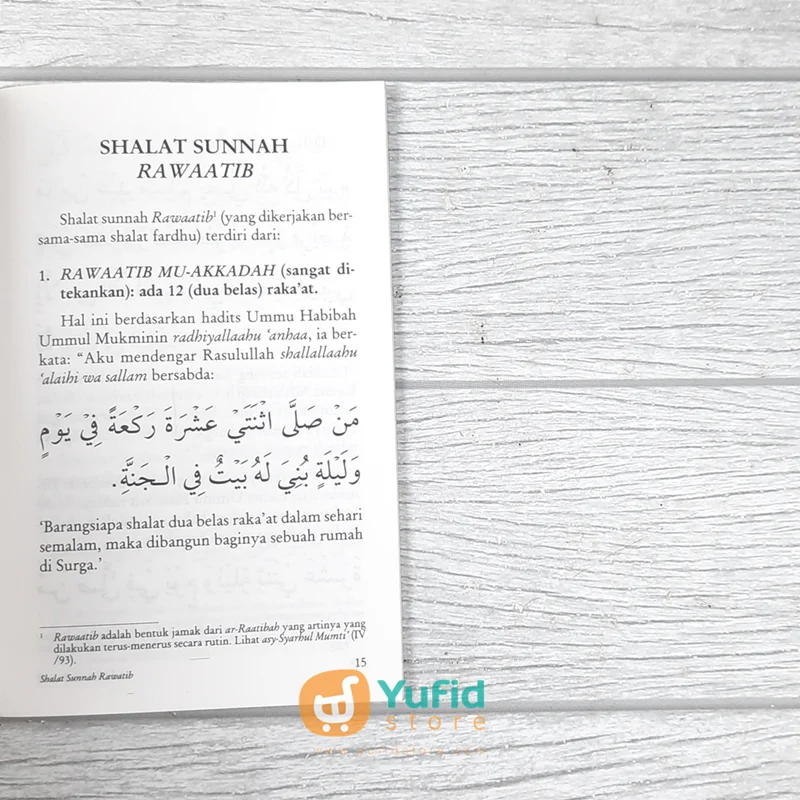 SHALAT SUNNAH
RAWAATIB
Shalat sunnah Rawaatib¹ (yang dikerjakan ber-
sama-sama shalat fardhu) terdiri dari:
1. RAWAATIB MU-AKKADAH (sangat di-
tekankan): ada 12 (dua belas) raka'at.
Hal ini berdasarkan hadits Ummu Habibah
Ummul Mukminin radhiyallaahu 'anhaa, ia ber-
kata: "Aku mendengar Rasulullah shallallaahu
'alaihi wa sallam bersabda:
مَنْ صَلَّى اثْنَتَيْ عَشْرَةَ رَكْعَةً فِيْ يَوْمٍ
وَلَيْلَةٍ بُنِيَ لَهُ بَيْتٌ فِي الْجَنَّةِ.
'Barangsiapa shalat dua belas raka'at dalam sehari
semalam, maka dibangun baginya sebuah rumah
di Surga.'
¹ Rawaatib adalah bentuk jamak dari ar-Raatibah yang artinya yang
dilakukan terus-menerus secara rutin. Lihat asy-Syarhul Mumti' (IV
/93).
15
Shalat Sunnah Rawatib
Yufid
store